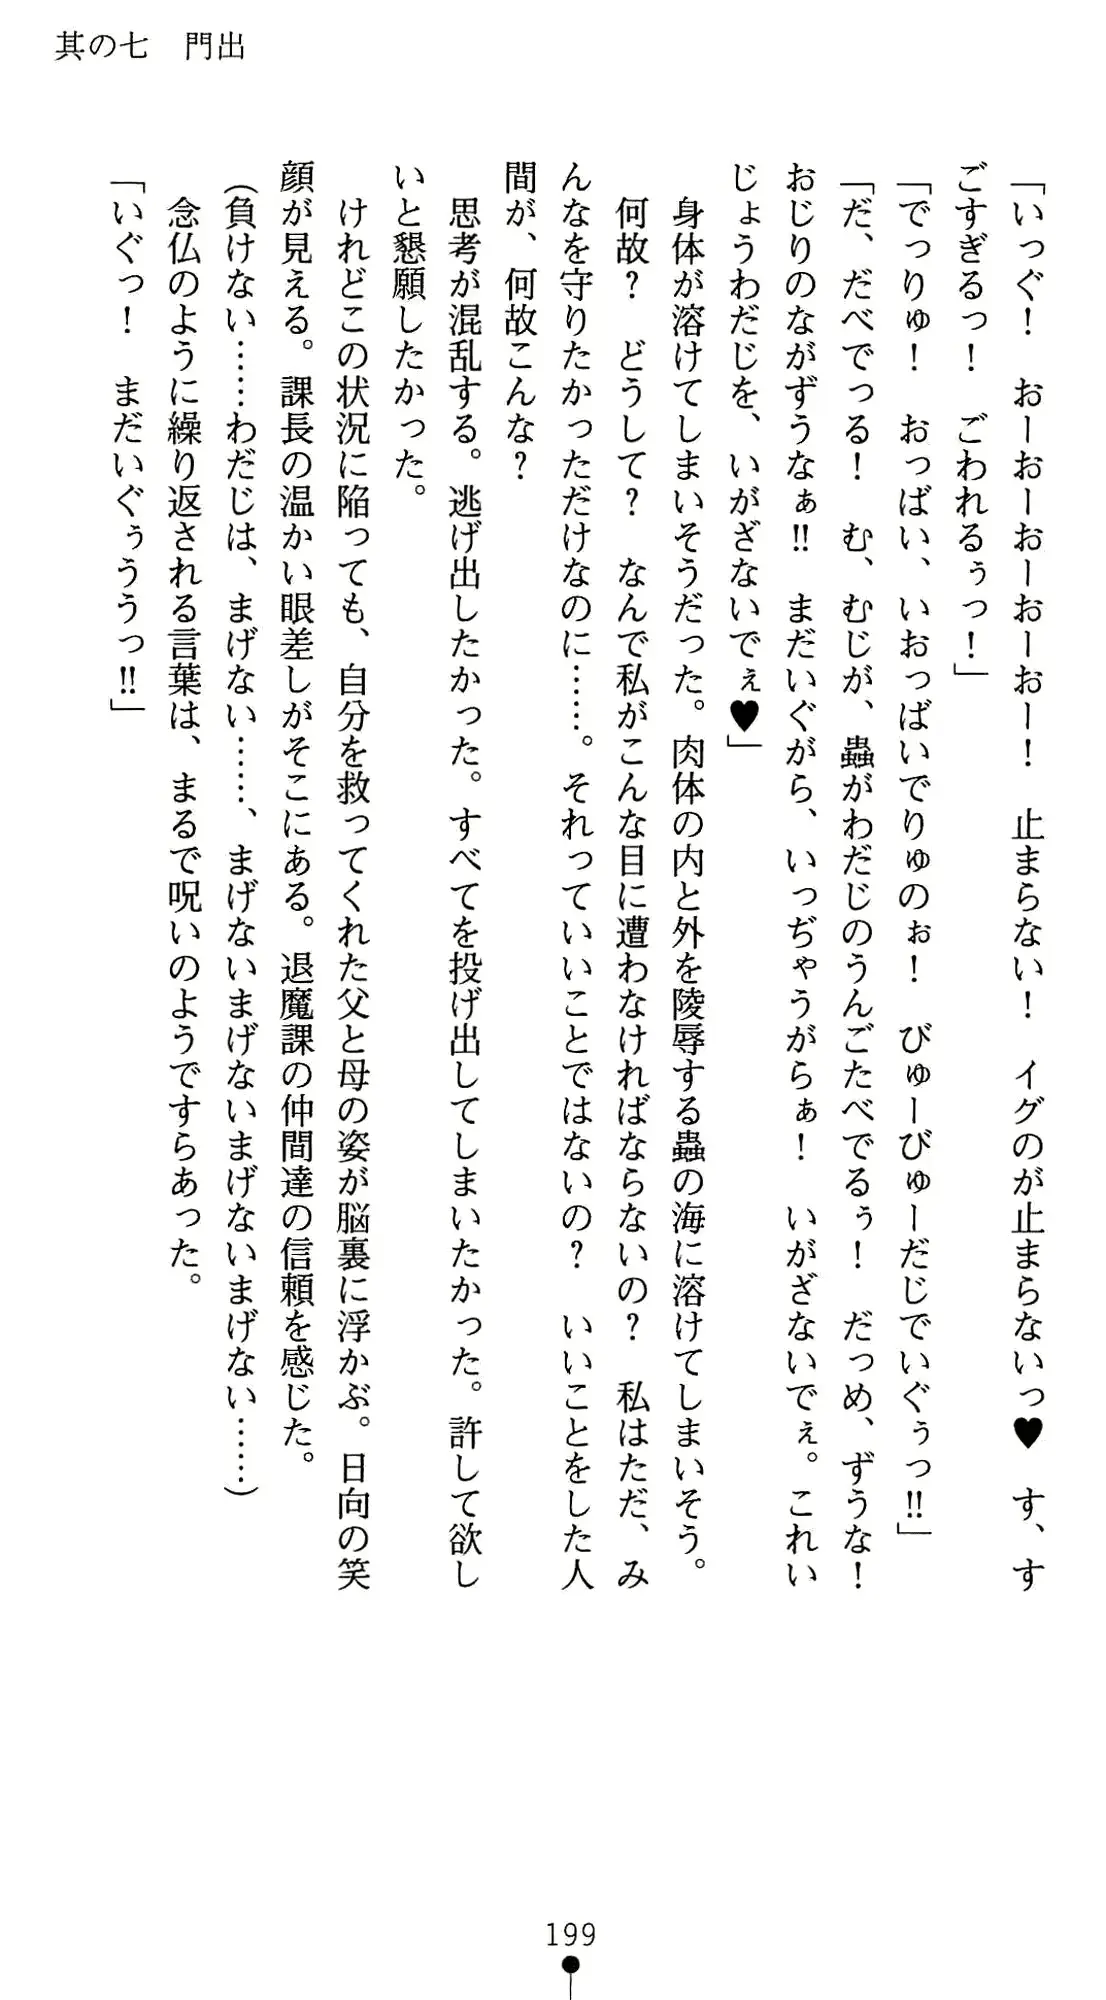 其の七　門出
「いっぐ！　おーおーおーおーおー！　止まらない！　イグのが止まらないっ♥　す、す
ごすぎるっ！　ごわれるぅっ！」
「でっりゅ！　おっぱい、いおっぱいでりゅのぉ！　びゅーびゅーだじでいぐぅっ‼」
「だ、だべでっる！　む、むじが、蟲がわだじのうんごたべでるぅ！　だっめ、ずうな！
おじりのながずうなぁ‼　まだいぐがら、いっぢゃうがらぁ！　いがざないでぇ。これい
じょうわだじを、いがざないでぇ♥」
　身体が溶けてしまいそうだった。肉体の内と外を陵辱する蟲の海に溶けてしまいそう。
　何故？　どうして？　なんで私がこんな目に遭わなければならないの？　私はただ、み
んなを守りたかっただけなのに……。それっていいことではないの？　いいことをした人
間が、何故こんな？
　思考が混乱する。逃げ出したかった。すべてを投げ出してしまいたかった。許して欲し
いと懇願したかった。
　けれどこの状況に陥っても、自分を救ってくれた父と母の姿が脳裏に浮かぶ。日向の笑
顔が見える。課長の温かい眼差しがそこにある。退魔課の仲間達の信頼を感じた。
（負けない……わだじは、まげない……、まげないまげないまげないまげない……）
　念仏のように繰り返される言葉は、まるで呪いのようですらあった。
「いぐっ！　まだいぐぅううっ‼」
199